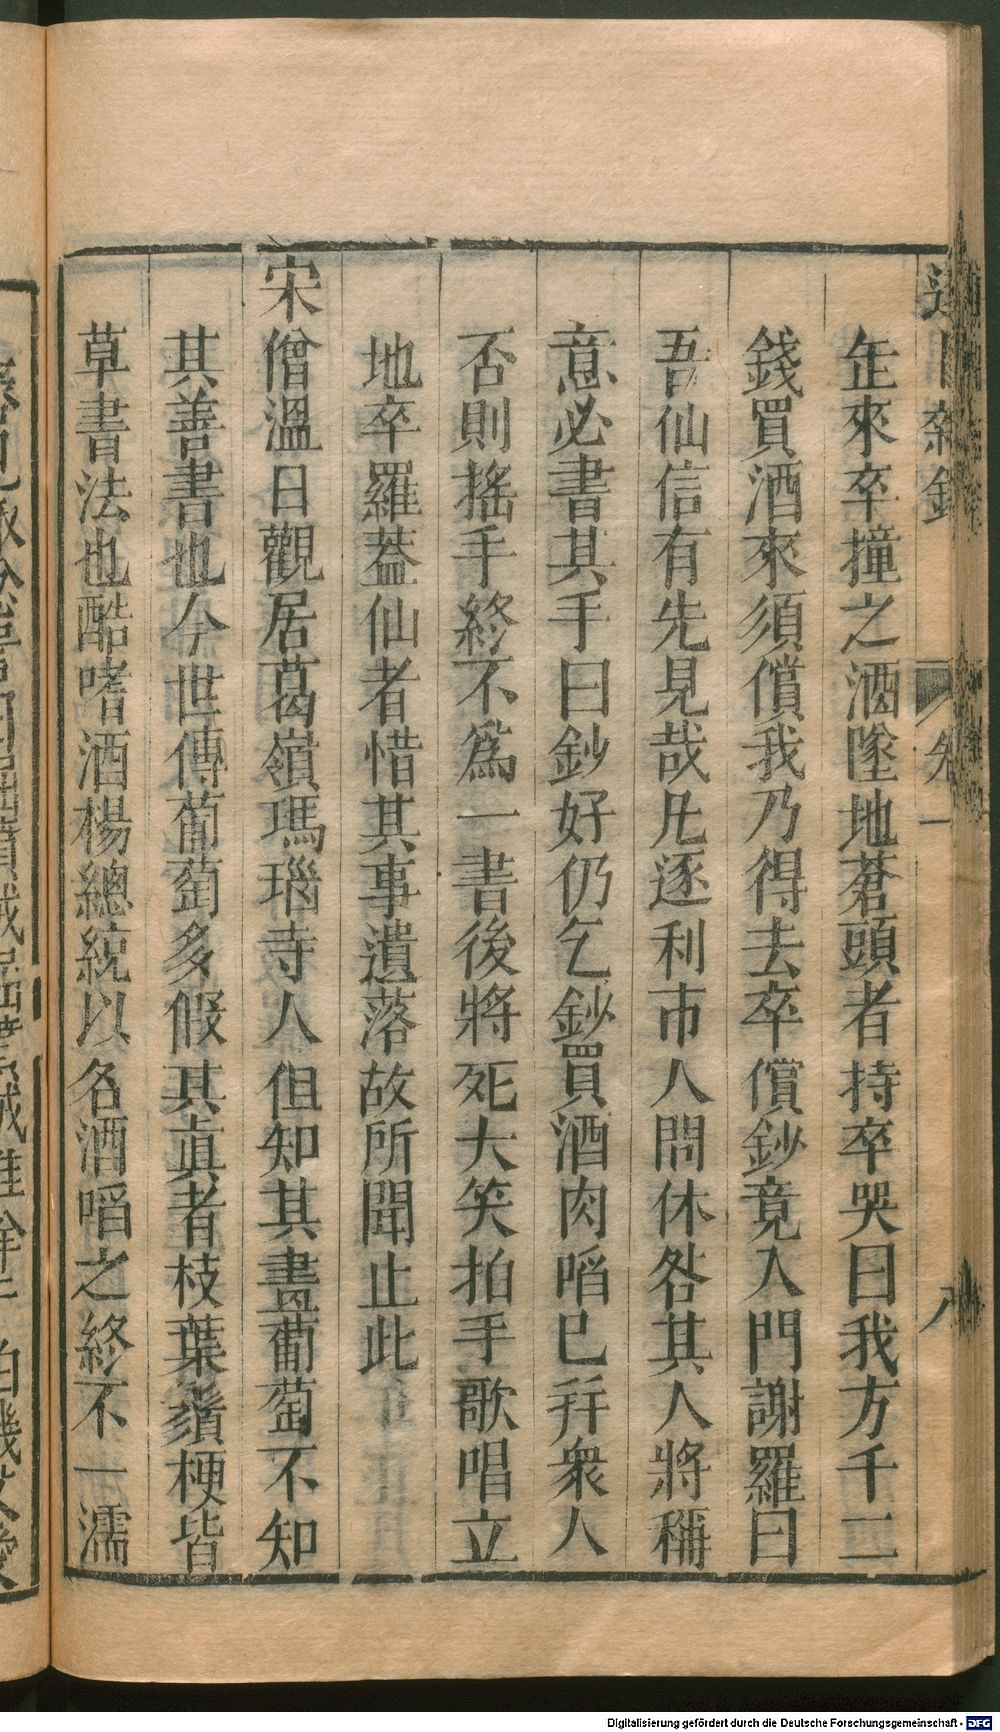 遂昌雜錄
卷一
八
缶來卒撞之酒墜地蒼頭者持卒哭曰我方千二
錢買酒來須償我乃得去卒償鈔竟入門謝羅曰
吾仙信有先見哉凡逐利市人問休咎其人將稱
意必書其手曰鈔好仍乞鈔買酒肉啗已并衆人
否則搖手終不為一書後將死大笑拍手歌唱立
地卒羅葢仙者惜其事遺落故所聞止此
宋僧溫日觀居葛嶺瑪瑙寺人但知其畫葡萄不知
其善書也今世傳葡萄多假其眞者枝葉鬚梗皆
草書法也酷嗜酒楊總統以名酒啗之終不一濡
Digitalisierung gefördert durch die Deutsche Forschungsgemeinschaft - DFG